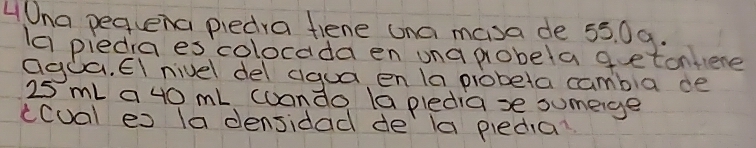 4 Una pequeña piedra tiene una masa de 55.0g.
la piedra es colocada en una probeta que contiene
agua. El nivel del agua en la probeta cambia de
25 mL a 40 mL cuando la piedra se sumerge
¿Cual es la densidad de la piedra?